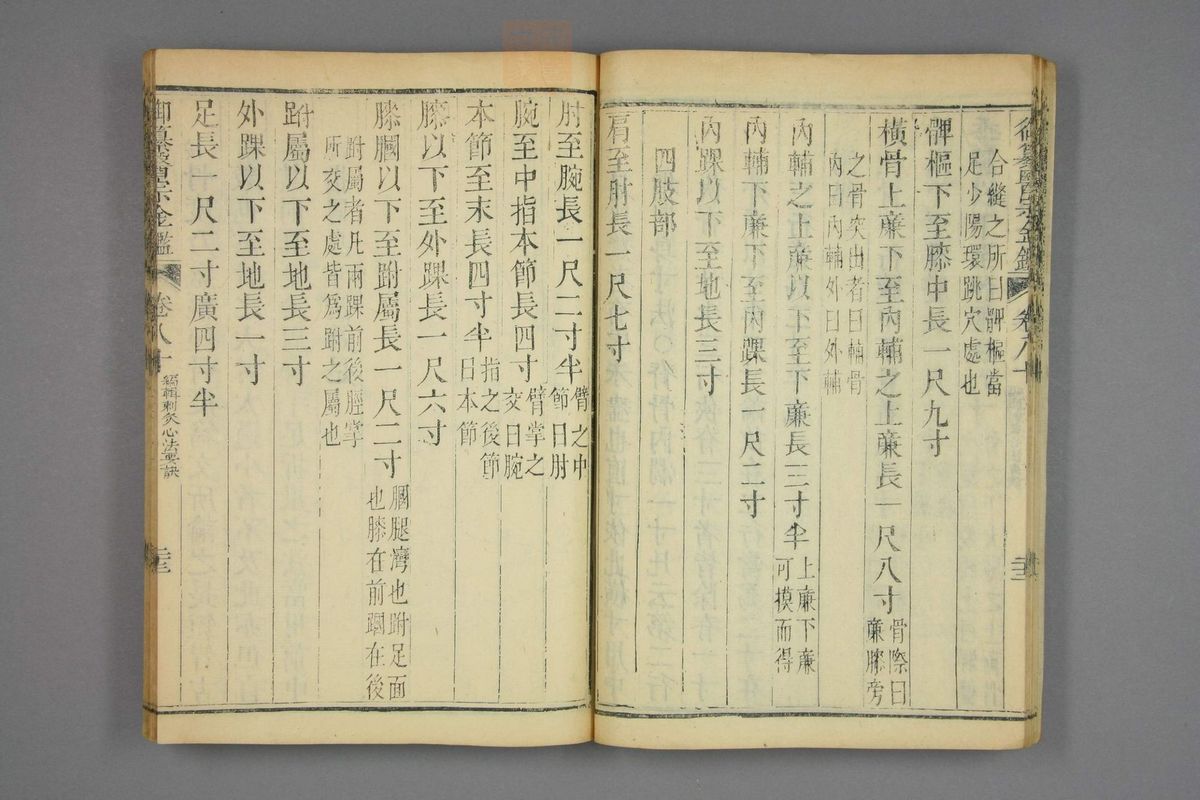 御纂醫宗金鑑 卷八十
合縫之所曰髀樞當
足少陽環跳穴處也
髀樞下至膝中長一尺九寸
橫骨上廉下至內輔之上廉長一尺八寸
骨際曰
廉膝旁
之骨突出者曰輔骨
內曰內輔外曰外輔
內輔之上廉以下至下廉長三寸半
上廉下廉
可摸而得
內輔下廉下至內踝長一尺二寸
內踝以下至地長三寸
四肢部
肩至肘長一尺七寸
肘至腕長一尺二寸半
臂之中
節曰肘
腕至中指本節長四寸
臂掌之
交曰腕
本節至末長四寸半
指之後節
曰本節
膝以下至外踝長一尺六寸
膝膕以下至跗屬長一尺二寸
膕腿灣也跗足面
也膝在前膕在後
跗屬者凡兩踝前後脛掌
所交之處皆為跗之屬也
跗屬以下至地長三寸
外踝以下至地長一寸
足長一尺二寸廣四寸半
御纂醫宗金鑑 卷八十
編輯刺灸心法要訣